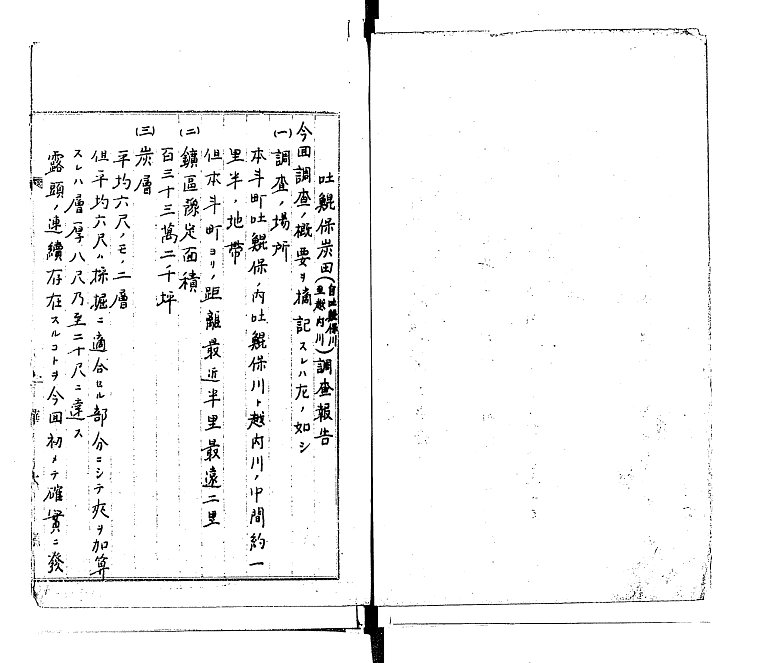 吐鯤保炭田(自吐鯤保川至越内川)調査報告
今回調査ノ概要ヲ摘記スレハ左ノ如シ
(一)調査ノ場所
本斗町吐鯤保ノ内吐鯤保川ト越内川ノ中間約一
里半ノ地帶
但本斗町ヨリノ距離最近半里最遠二里
(二)鑛區豫定面積
百三十三萬二千坪
(三)炭層
平均六尺ノモノ二層
但平均六尺ハ採掘ニ適合セル部分ニシテ夾ヲ加算
スレハ層厚八尺乃至二十尺ニ達ス
露頭ノ連續存在スルコトヲ今回初メテ確實ニ發